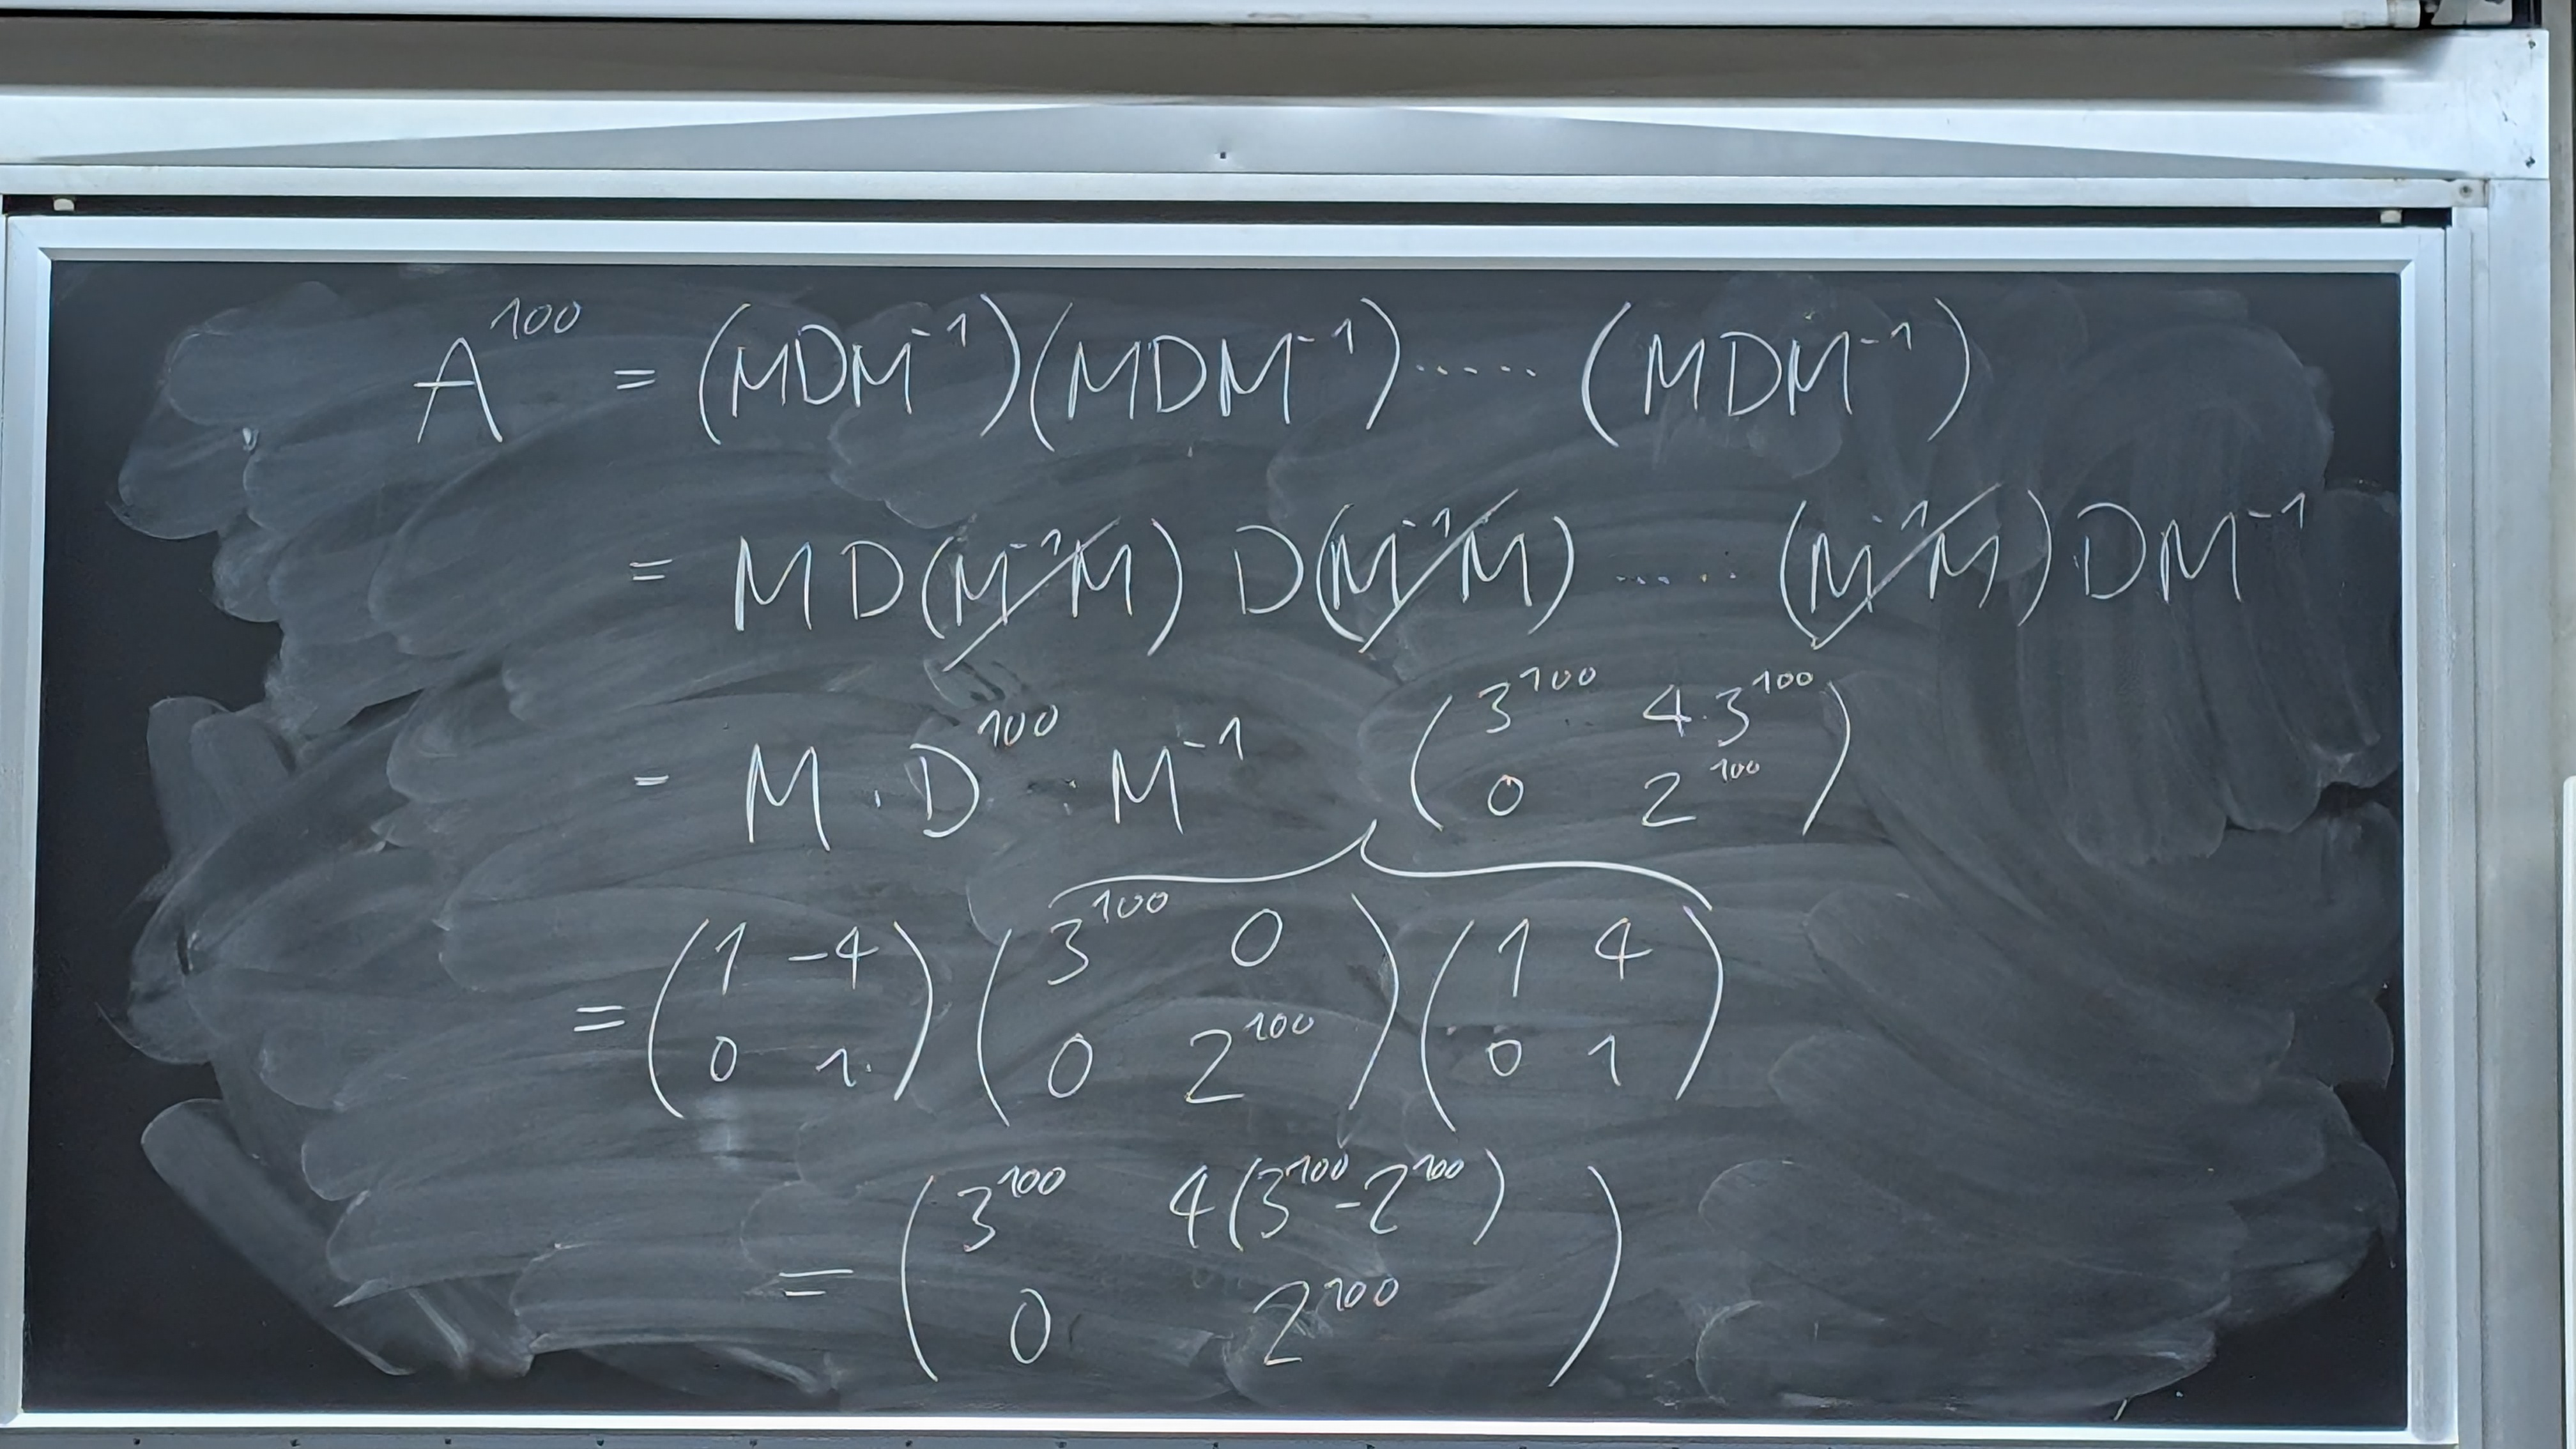 A^100 = (MDM^-1)(MDM^-1)..... (MDM^-1)
= MD(M^-1M) D(M^-1M) ...... (M^-1M)DM^-1
= M · D^100 · M^-1
(3^100 4·3^100
0 2^100)
= (1 -4
0 1) (3^100 0
0 2^100) (1 4
0 1)
= (3^100 4(3^100-2^100)
0 2^100)